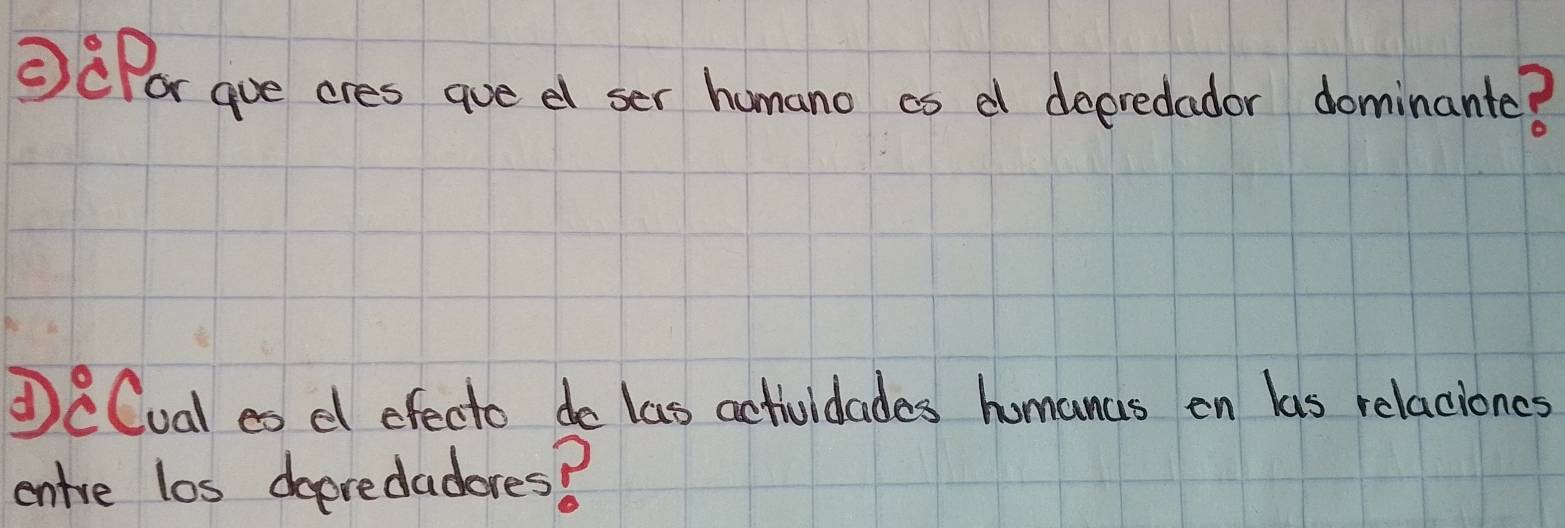 c) ¿Por que cres que el ser humano es el depredador dominante?
d) ¿Cual es el efecto de las actividades humanas en las relaciones
entre los depredadores?